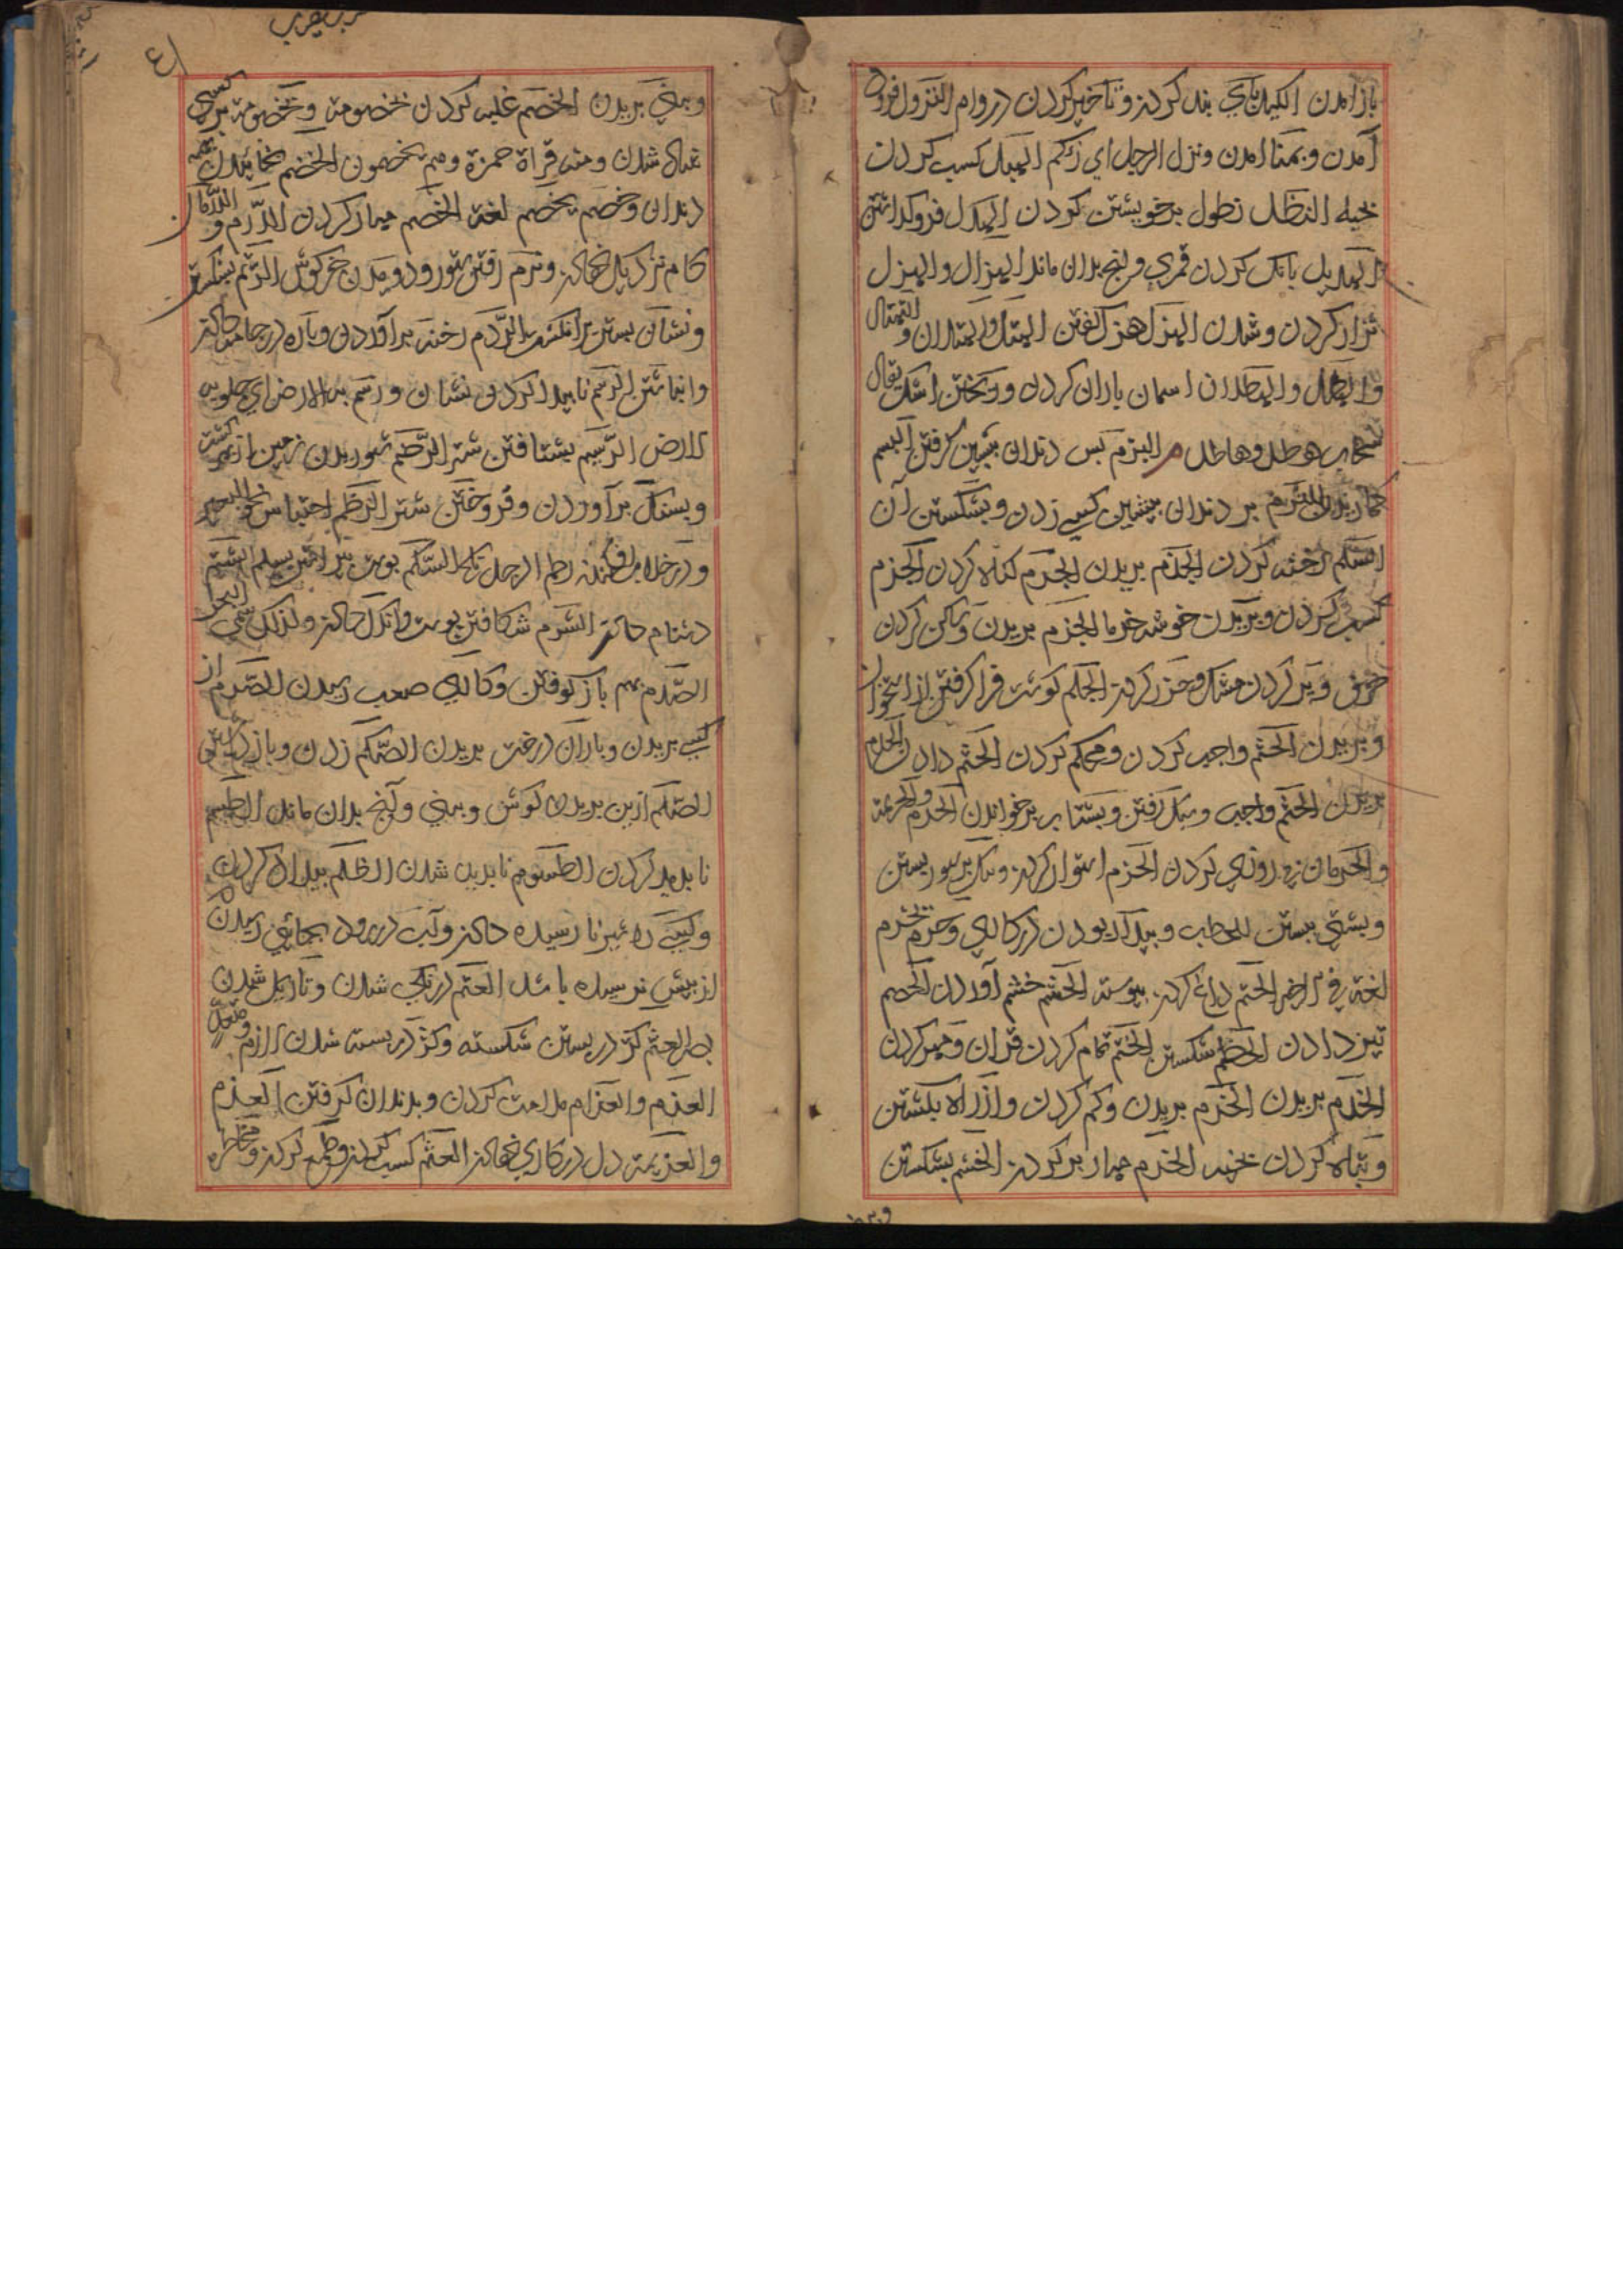 باز آمدن الکبل بای بند کردن و تاخیر کردن در وام النزول فرود
آمدن و بمنا آمدن و نزل الرجل ای زکم الهبل کسب کردن
بحیله النطل نطول بر خویشتن کردن الهدل فرو کذاشتن
الهدیل بانک کردن قمری و انچ بدان ماند الهزال و الهزل
نزار کردن و شدن الهزل هزل کفتن الهتل و الهتلان و التهتال
و الهطل و الهطلان اسمان باران کردن و ریختن اشک یقال
سحاب هطل و هاطل م البزم بس دندان پیشین کرفتن البسم
الثرم بر دندان پیشین کسی زدن و بشکستن آن
الثلم رخنه کردن الجذم بریدن الجرم کناه کردن الجرم
کسب کردن و بریدن خوشه خرما الجزم بریدن و ساکن کردن
حرف و پر کردن مشک و حزر کردن الجلم کوشت فرا کرفتن از استخوان
و بریدن الحتم واجب کردن و محکم کردن الحثم دادن الحذم
بریدن الحتم واجب و سبک رفتن و بشتاب بر خواندن الحرم و الحریمة
و الحرمان بی روزی کردن الحزم استوار کردن و تنک بر ستور بستن
و بشتی بستن للحاطب و بیدار بودن در کاری و حزم تحزم
لغة فی الحتم داغ کردن پیوسته الحشم خشم آوردن الحصم
تیز دادن الحطم شکستن الختم تمام کردن قران و مهر کردن
الخذم بریدن الخرم بریدن و کم کردن و از راه بکشتن
و تباه کردن بخیه الخزم مهار بر کردن الخشم بشکستن
و بینی بریدن الخصم غلبه کردن بخصومت و بخصومت بر کسی
غالب شدن و منه قراة حمزة و هم یخصمون الخضم خائیدن بهمه
دندان و خضم یخضم لغة الخطم مهار کردن الدرم و الدرمان
کام نزدیک نهادن و نرم رفتن ستور و دویدن خرکوش الرتم بشکستن
و نشان بستن بر انکشت الردم رخنه بر آوردن و پاره در جامه دادن
و انباشتن الرسم نا پیدا کردن نشان و رسم به الارض ای جلوس
الارض الرسیم بشتافتن شتر الرطم شوریدن زمین از بهر کشت
و بسنک بر آوردن و فروختن شتر الرطم احتباس نجو البعیر
و در خلاب افکندن رطم الرجل نکح السلم پوست پیراستن بسلم الشتم
دشنام دادن الشرم شکافتن پوست و اندک دادن و لذلک سمی البحل
الصدم بهم باز کوفتن و کاری صعب رسیدن الصرم از
کسی بریدن و بار آن درخت بریدن الصکم زدن و باز داشتن
الصلم از بن بریدن کوش و بینی و آنچ بدان ماند الطسم
ناپدید کردن الطسوم ناپدید شدن الظلم بیداد کردن
و کسی را شیر نا رسیده دادن و آب در رود بجائی رسیدن
از پیش نرسیده باشد العتم درنکی شدن و تاریک شدن
بصر العثم کژ در بستن شکسته و کژ در بسته شدن لازم و متعد
العذم و العذام ملامت کردن و بدندان کرفتن العزم
و العزیمة دل در کاری نهادن العسم کسب کردن و طمع کردن و مخاطره